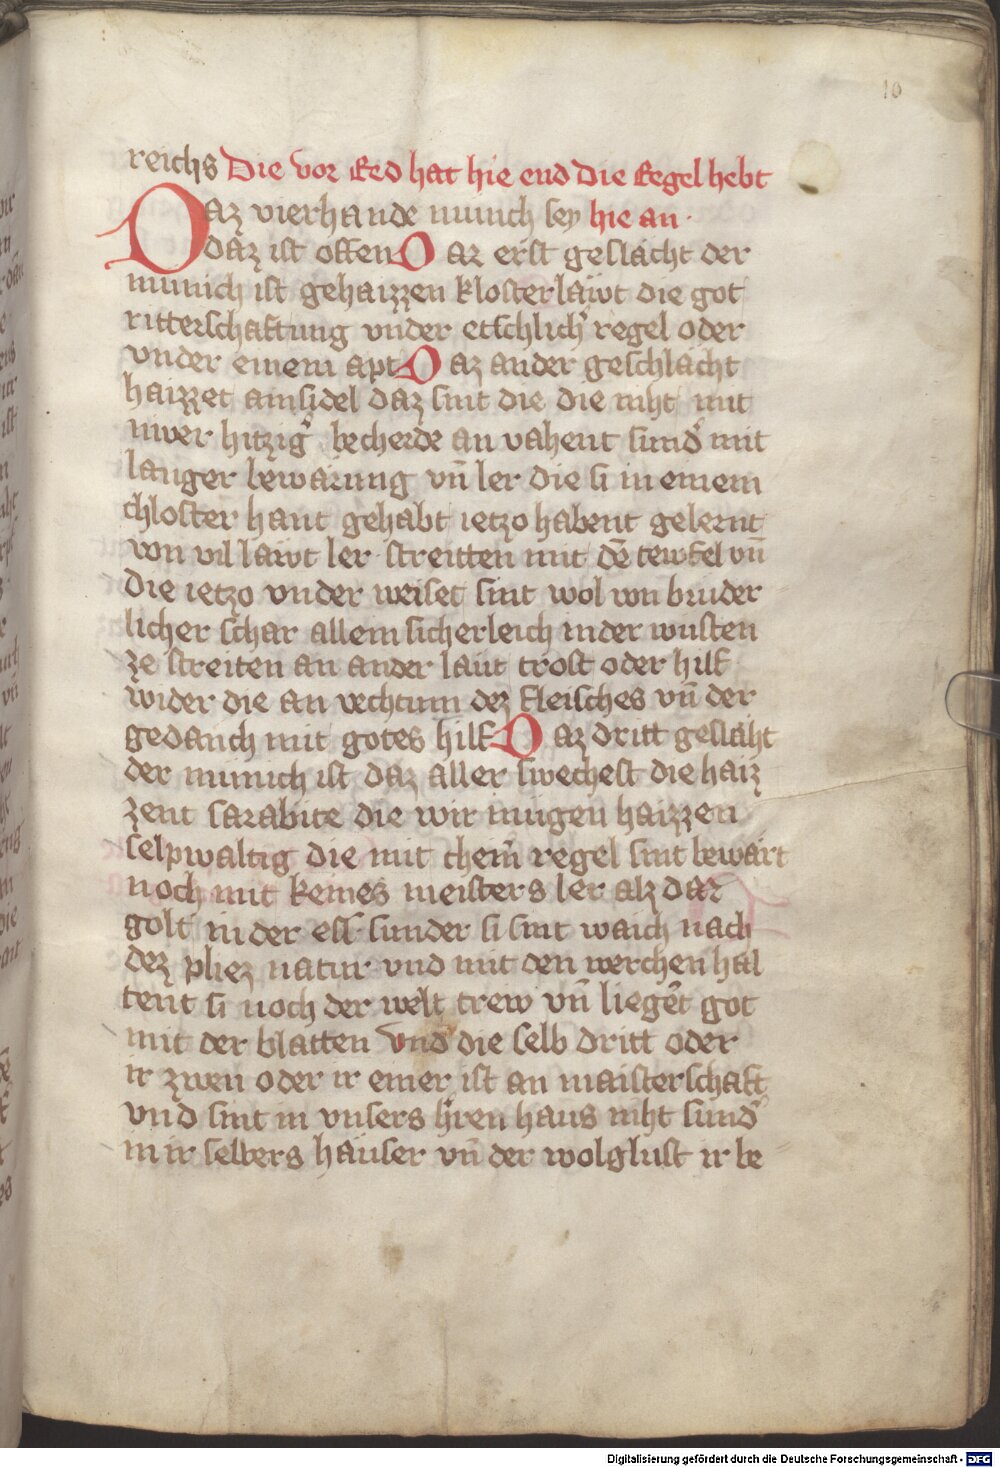 10
reichs Die vor Red hat hie end Die Regel hebt
Daz vierhande munich sey hie an ·
daz ist offen Daz erst geslächt der
munich ist gehaizzen klosterläwt die got
ritterschaftung vnder etschlich᷑ regel oder
vnder einem apt Daz ander geschlächt
haizzet ainsidel daz sint die die niht mit
niwer hitzig᷑ becherde an vahent sund᷑ mit
langer bewarung vn̄ ler die si in einem
chloster hant gehabt ietzo habent gelernt
von vil läwt ler streitten mit dē tewfel vn̄
die ietzo vnder weiset sint wol von bruder
licher schar allein sicherleich in der wusten
ze streiten an ander läut trost oder hilf
wider die an vechtum dez fleisches vn̄ der
gedanch mit gotes hilf Daz dritt geslaht
der munich ist daz aller swechest die haiz
zent sarabite die wir mugen haizzen
selpwaltig die mit chein̄ regel sint bewart
noch mit keines meisters ler alz daz
golt in der ess sunder si sint waich nach
dez pliez natur vnd mit den werchen hal
tent si noch der welt trew vn̄ liegēt got
mit der blatten vnd die selb dritt oder
ir zwen oder ir einer ist an maisterschaft
vnd sint in vnsers h᷑ren haus niht sund᷑
in ir selbers häuser vn̄ der wolglust ir be
Digitalisierung gefördert durch die Deutsche Forschungsgemeinschaft - DFG